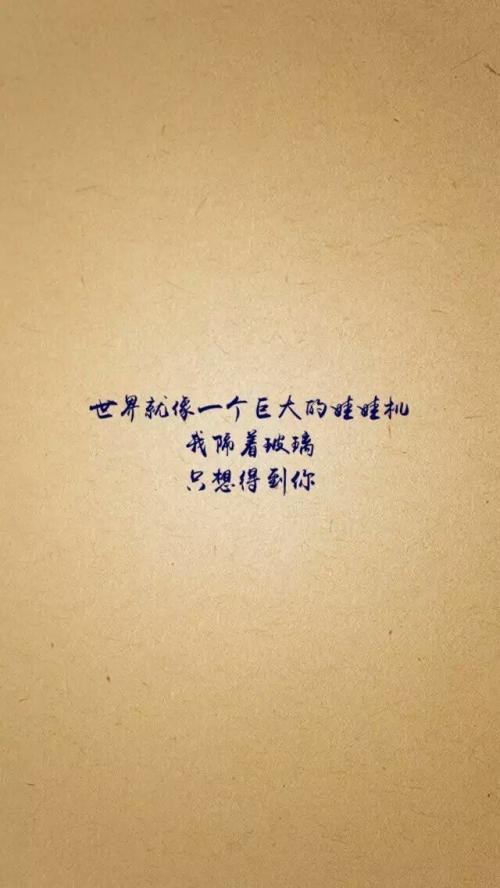 世界就像一个巨大的娃娃机
我隔着玻璃
只想得到你